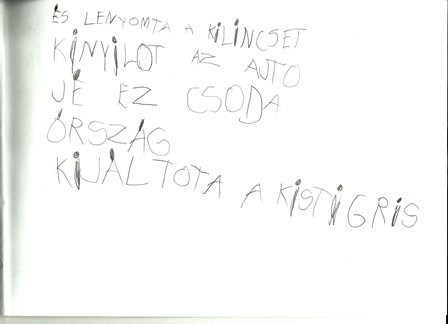 ÉS LENYOMTA A KiLiNCSET
KiNYiLOT AZ AJTO
JÉ EZ CSODA
ORSZÁG
KiJÁLTOTA A KiSTiGRiS